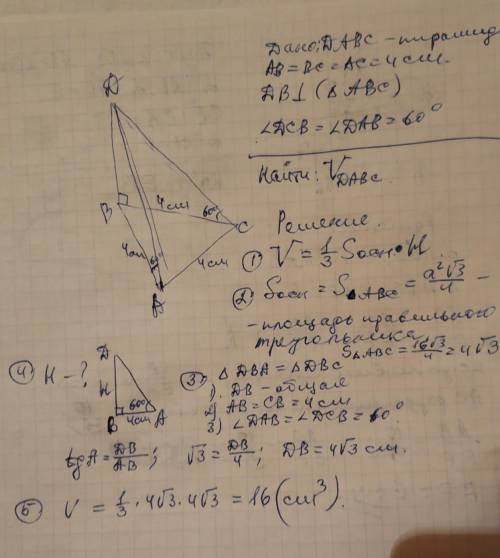 Дано: DABC - пирамид
AB = BC = AC = 4 см.
DB ⊥ (△ ABC)
∠DCB = ∠DAB = 60°
Найти: V DABC.
D
B
4 см
60°
C
4 см
4 см
A
Решение.
① V = 1/3 Sосн · H.
② Sосн = S△ABC = a²√3/4 -
- площадь правильного
треугольника
S△ABC = 16√3/4 = 4√3
③ △ DBA = △DBC
1) DB - общая
2) AB = CB = 4 см
3) ∠DAB = ∠DCB = 60°
④ H - ?
D
H
60°
B
4 см
A
tg A = DB/AB; √3 = DB/4; DB = 4√3 см.
⑤ V = 1/3 · 4√3 · 4√3 = 16 (см³).